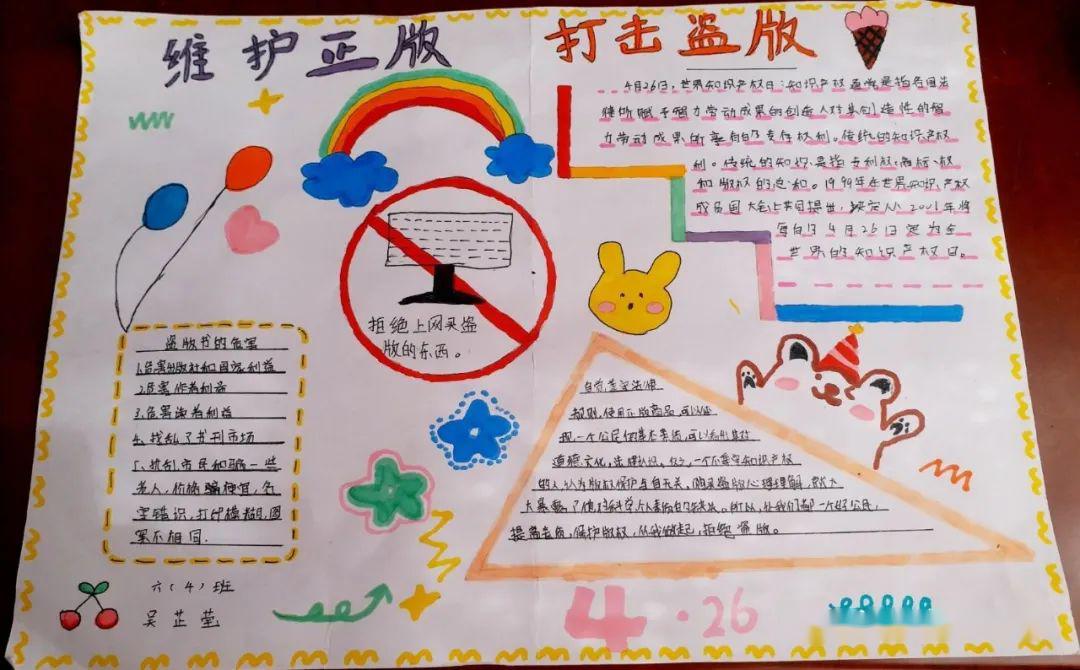 维护正版
打击盗版
4月26日,世界知识产权日:知识产权通常是指各国法
律所赋予智力劳动成果的创造人对其创造性的智
力劳动成果所享有的专有权利。传统的知识产权
利。传统的知识是指专利权、商标、权
和版权的总和。1999年在世界知识产权
成员国大会上共同提出,决定从2001年将
每年4月26日定为全
世界的知识产权日。
拒绝上网买盗
版的东西。
盗版书的危害
1.危害出版社和国家利益
2.危害作者利益
3.危害读者利益
4.扰乱了书刊市场
5.扰乱市民和骗一些
老人,价格骗便宜,名
字错识,打印模糊,图
案不相同.
自觉遵守法律
规则,使用正版商品,可以体
现一个公民的基本素质,可以看出其
道德文化,法律认识,一个不尊重知识产权
的人认为版权保护与自无关,购买盗版心理理解,就大
大暴露了他对科学个人素质的。所以,让我们都一个好公民,
提高去质,保护版权,从我做起,拒绝盗版。
六(4)班
吴芷莹
4.26